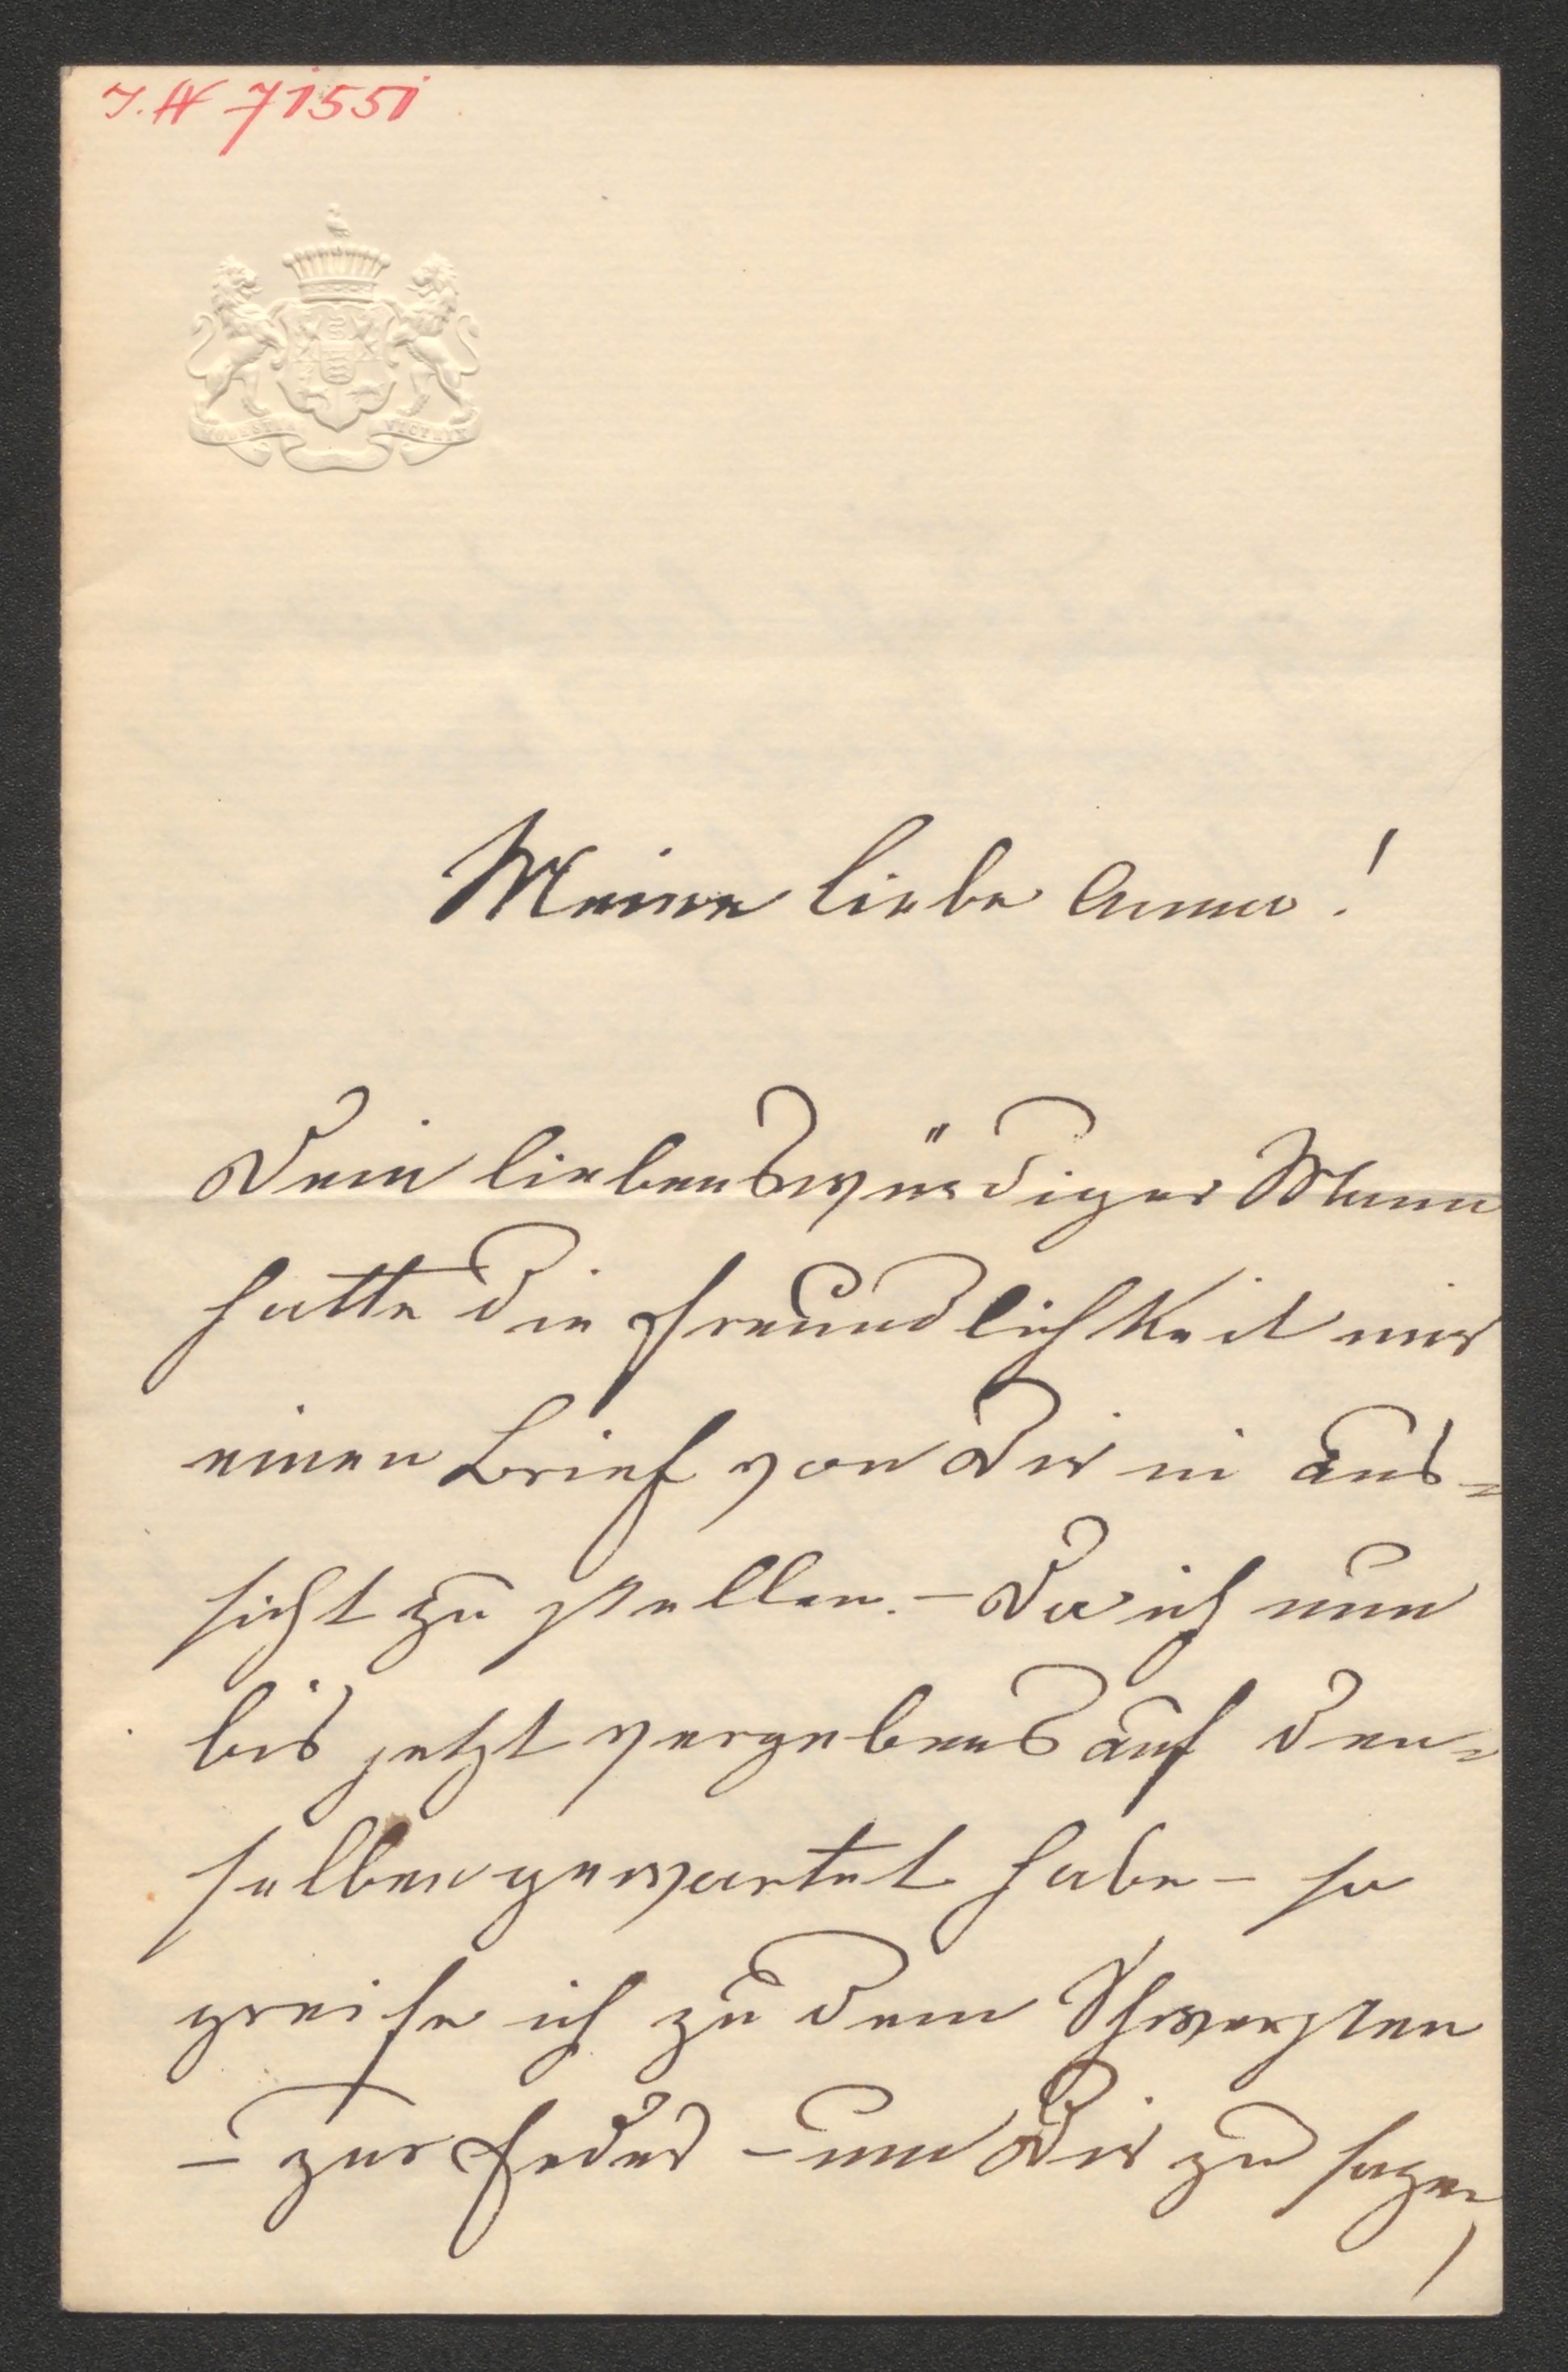 J. N 71551
VICTRIX
Meine liebe Anna!
Dein liebenswürdiger Mann
hatte die Freundlichkeit mir
einen Brief von Dir in Aus=
sicht zu stellen. – Da ich nun
bis jetzt vergebens auf den=
selben gewartet habe – so
greife ich zu dem Schwersten
– zur Feder – um Dir zu sagen,